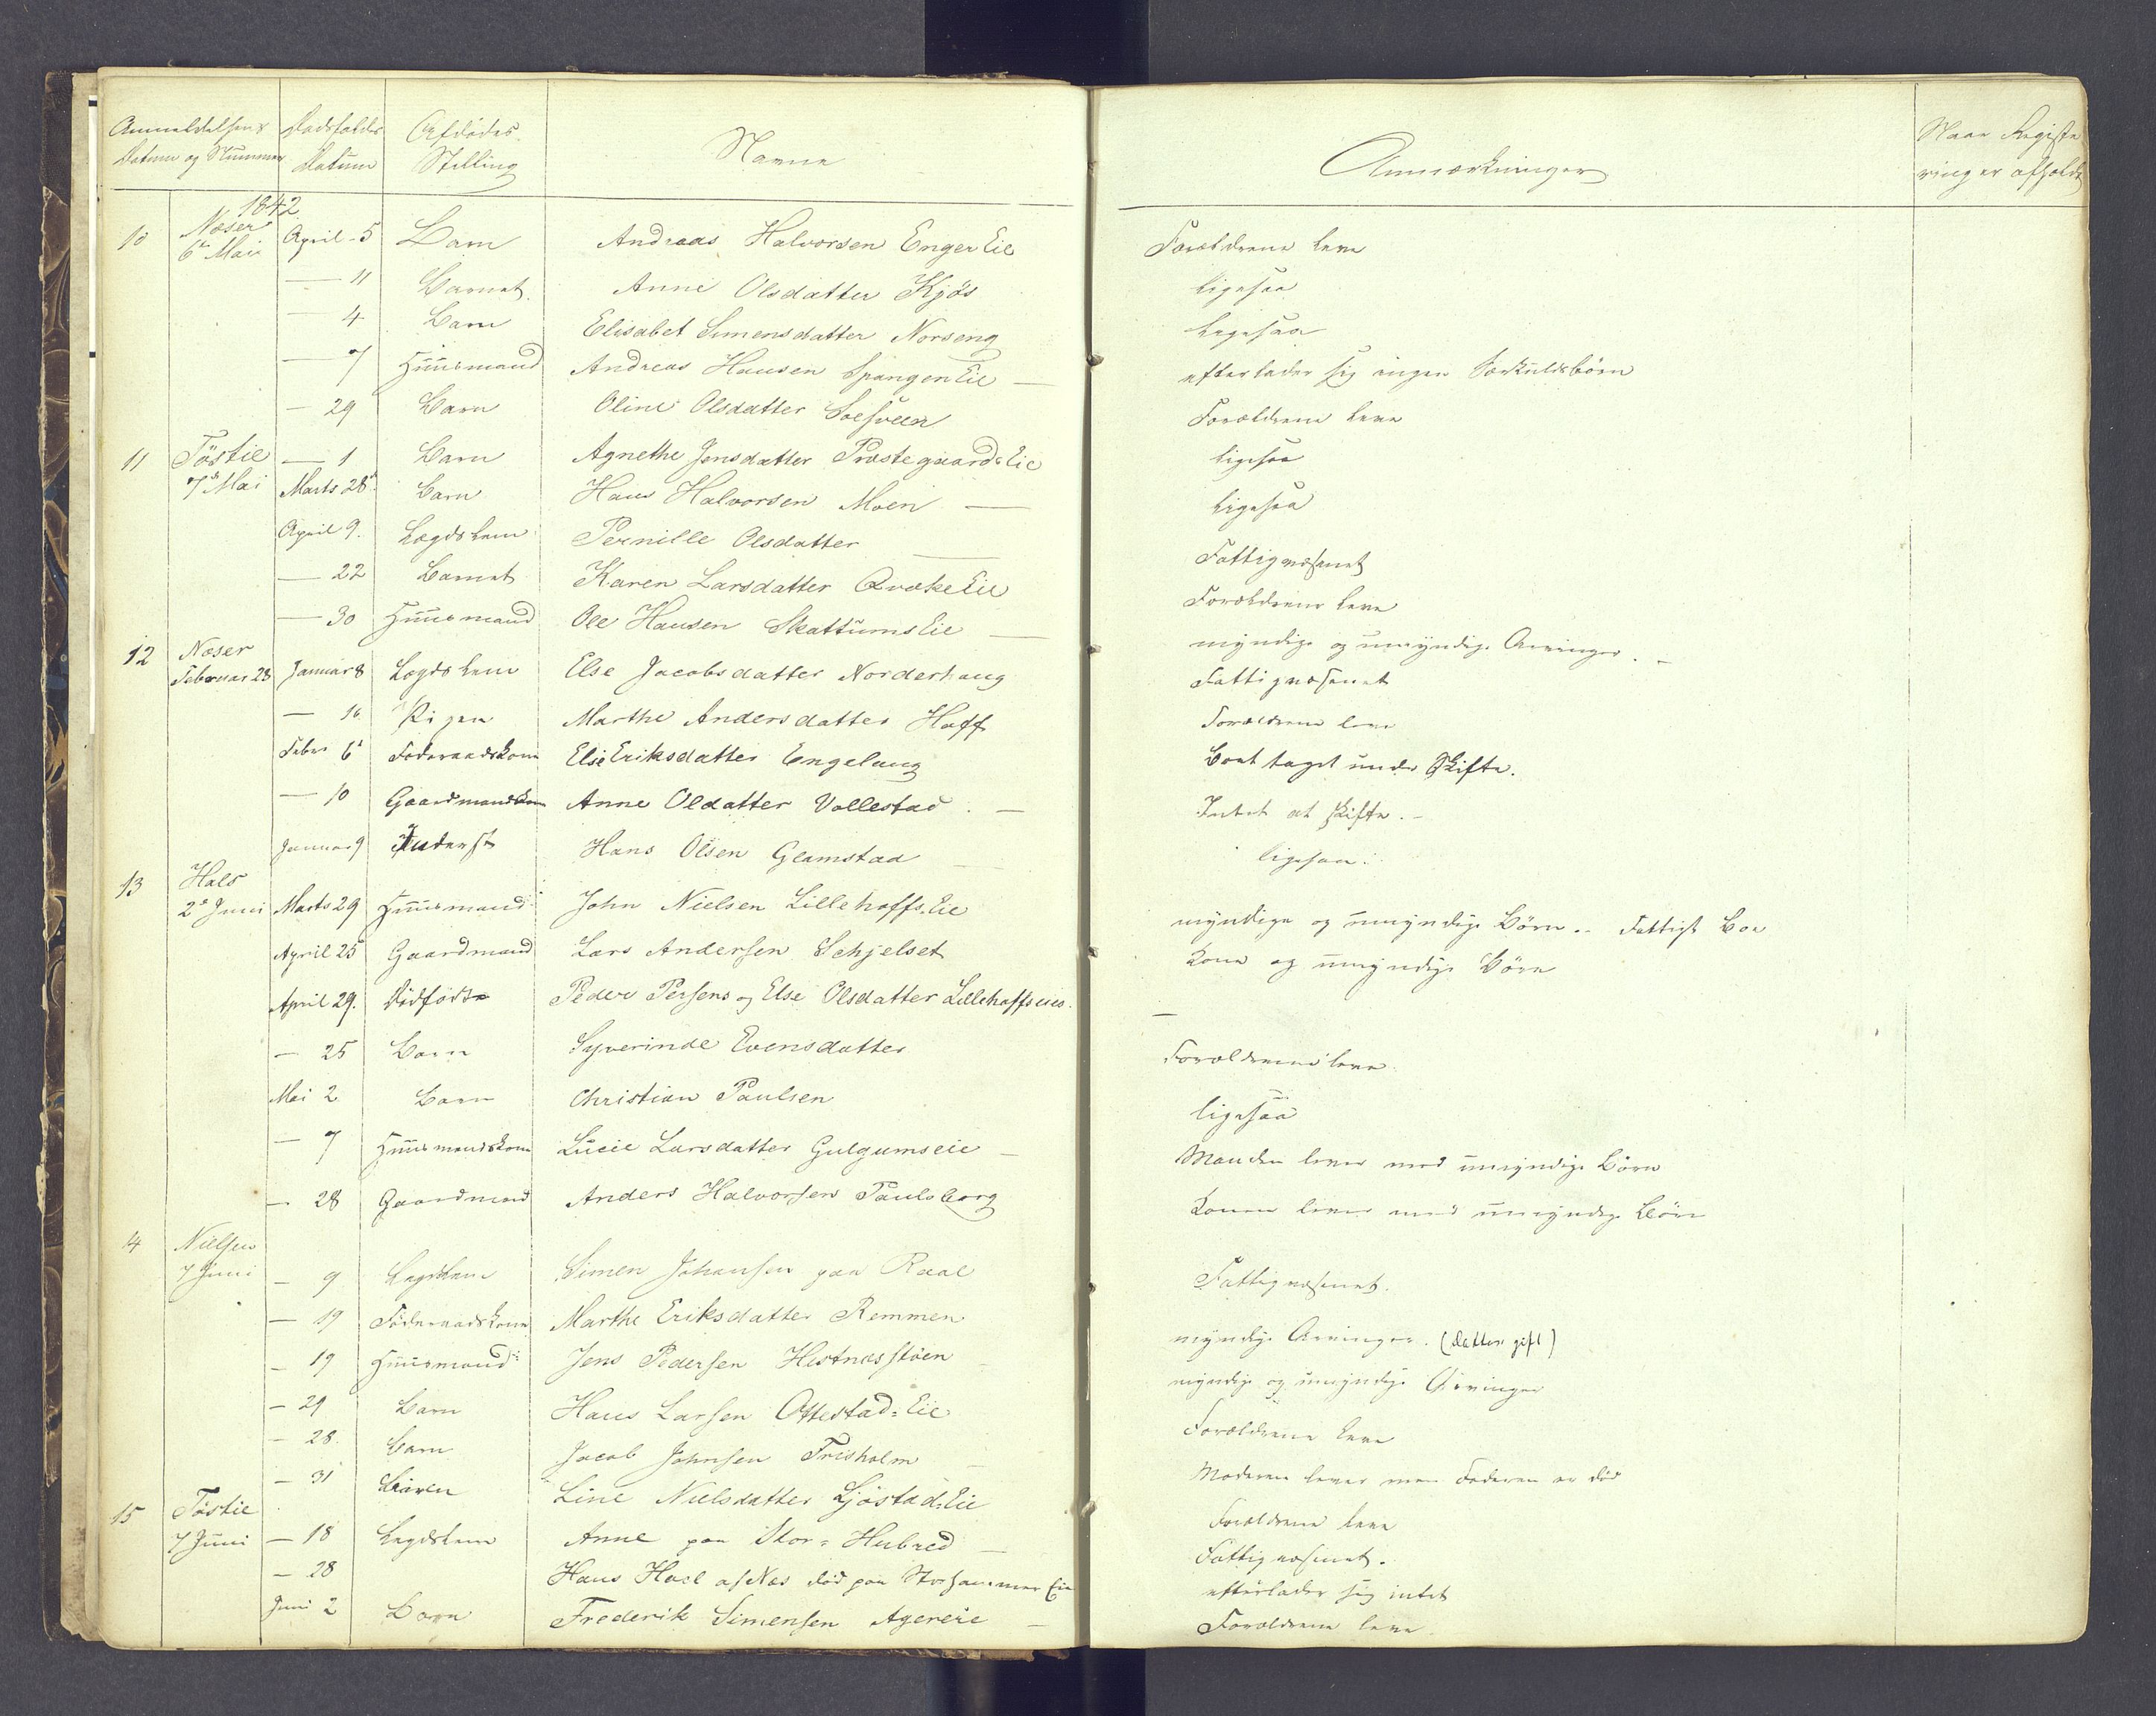 Anmeldelsens Datum og Nummer | Dødsfaldets Datum | Afdødes Stilling | Navne | Anmærkninger | Naar Registrering er afholdt
1842
10 Næser 6te Mai April 5 Barn Andreas Halvorsen Enger Eie Forældrene leve
— 11 Barnet Anne Olsdatter Kjøs ligesaa
— 4 Barn Elisabet Simensdatter Norseng ligesaa
— 7 Huusmand Andreas Hansen Spangen Eie — efterlader sig ingen Særkuldsbörn
— 29 Barn Oline Olsdatter Forældrene leve
11 Töstie 7de Mai — 1 Barn Agnethe Jensdatter Præstegaards Eie ligesaa
Marts 28 Barn Hans Halvorsen Moen — ligesaa
April 9. Lægdslem Pernille Olsdatter — Fattigvæsenet
— 22 Barnet Karen Larsdatter Qvæke Eie Forældrene leve
— 30 Huusmand Ole Hansen Skattums Eie — myndige og umyndige Arvinger. —
12 Næser Februar 28 Januar 8 Lægdslem Else Jacobsdatter Norderhaug Fattigvæsenet
— 16 Pigen Marthe Andersdatter Hoff Forældrene leve
Febr 6 Föderaadskone Else Eriksdatter Engelaug Boet taget under Skifte.
— 10 Gaardmandskone Anne Oldatter Vollestad. — Intet at skifte. —
Januar 9 Inderst Hans Olsen Glamstad ligesaa.
13 Hals 2de Juni Marts 29 Huusmand John Nielsen Lillehoffs Eie myndige og umyndige Börn. Fattigt Boe
April 25 Gaardmand Lars Andersen Schjelset Kone og umyndige Börn
April 29. Dödfödte Peder Persens og Else Olsdatter Lillehoffseies. —
— 25 Barn Syverinde Evensdatter Forældrene leve.
Mai 2 Barn Christian Paulsen ligesaa
— 7 Huusmandskone Lucie Larsdatter Gulgumseie — Manden lever med umyndige Börn
— 28 Gaardmand Anders Halvorsen Paulsborg Konen lever med umyndige Börn
14 Nielsen 7 Juni — 9 Lægdslem Simen Johansen paa Raal Fattigvæsenet.
— 19 Föderaadskone Marthe Eriksdatter Remmen myndige Arvinger. (datter gift)
— 19 Huusmand Jens Pedersen Hestnæsstöen myndige og umyndige Arvinger
— 29 Barn Hans Larsen Ottestad-Eie Forældrene leve
— 28. Barn Jacob Johnsen Frisholm Moderen lever men Faderen er död
— 31 Barn Line Nielsdatter Sjöstad-Eie Forældrene leve
15 Töstie 7 Juni — 18 Lægdslem Anne paa Stor-Hubred — Fattigvæsenet.
— 28 Hans Hoel af Næs död paa Storhammer Eie efterlader sig intet
Juni 2 Barn Frederik Simensen Agereie — Forældrene leve.